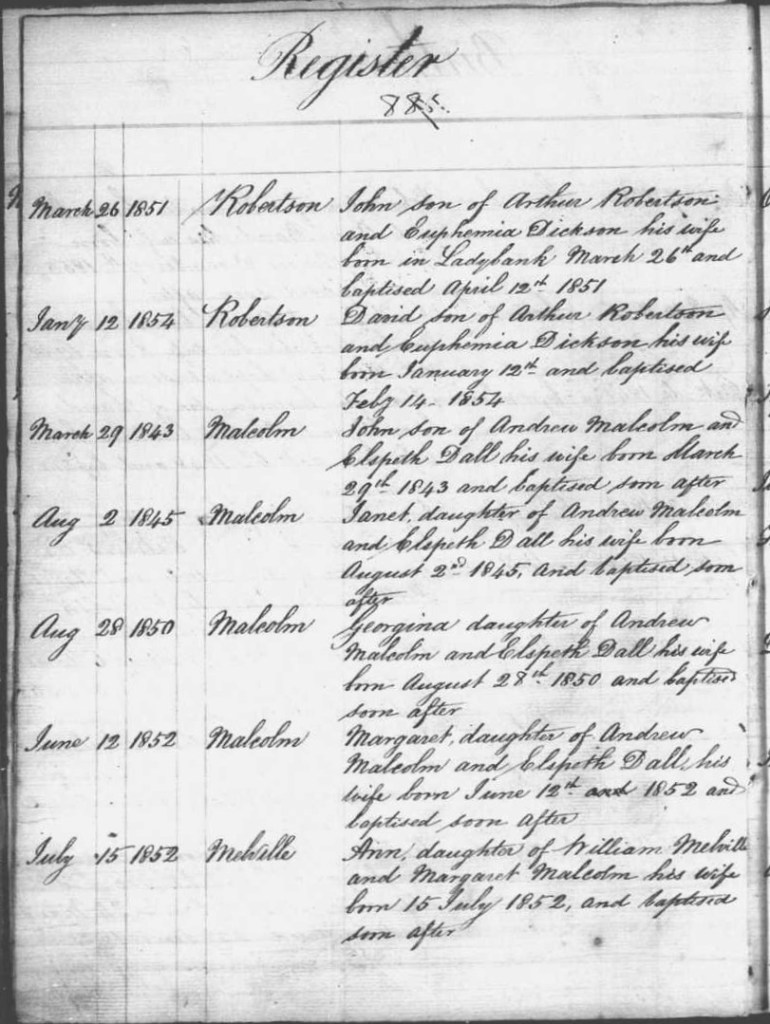 Register
885.
March 26 1851 Robertson John son of Arthur Robertson
and Euphemia Dickson his wife
born in Ladybank March 26th and
baptised April 12th 1851
Jany 12 1854 Robertson David son of Arthur Robertson
and Euphemia Dickson his wife
born January 12th and baptised
Feby 14. 1854
March 29 1843 Malcolm John son of Andrew Malcolm and
Elspeth Dall his wife born March
29th 1843 and baptised soon after
Aug 2 1845 Malcolm Janet, daughter of Andrew Malcolm
and Elspeth Dall his wife born
August 2nd 1845, and baptised soon
after
Aug 28 1850 Malcolm Georgina daughter of Andrew
Malcolm and Elspeth Dall his wife
born August 28th 1850 and baptised
soon after
June 12 1852 Malcolm Margaret, daughter of Andrew
Malcolm and Elspeth Dall, his
wife born June 12th and 1852 and
baptised soon after
July 15 1852 Melville Ann, daughter of William Melville
and Margaret Malcolm his wife
born 15 July 1852, and baptised
soon after